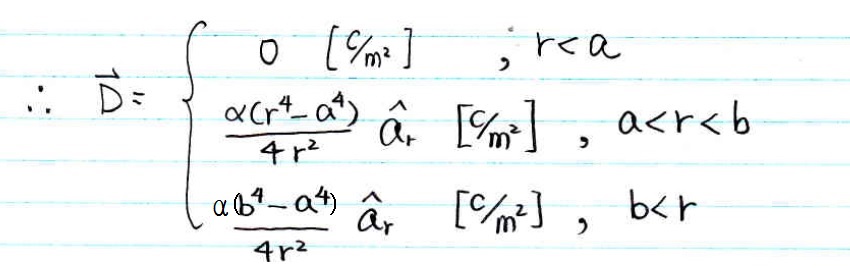 0 [C/m²] ; r<a
∴ D⃗ = { α(r⁴-a⁴)/4r² âᵣ [C/m²] , a<r<b
α(b⁴-a⁴)/4r² âᵣ [C/m²] , b<r